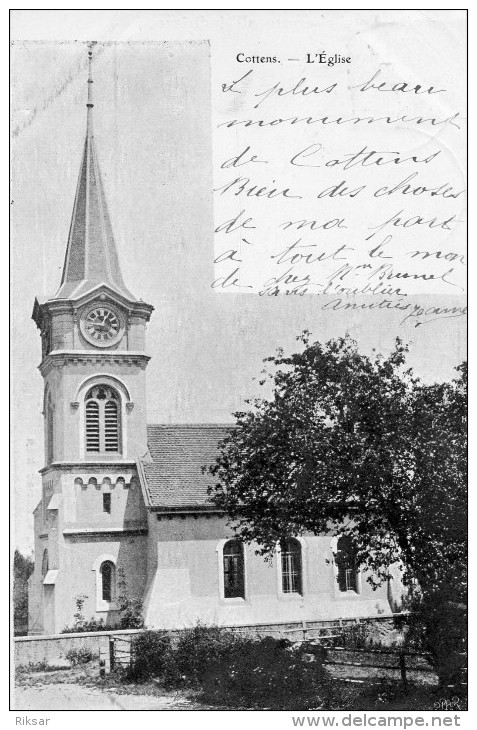 Cottens. — L'Église
Le plus beau
monument
de Cottens
Bien des choses
de ma part
à tout le mon
de chez Mme Brunel
sans l'oublier
Amitiés
Riksar
www.delcampe.net